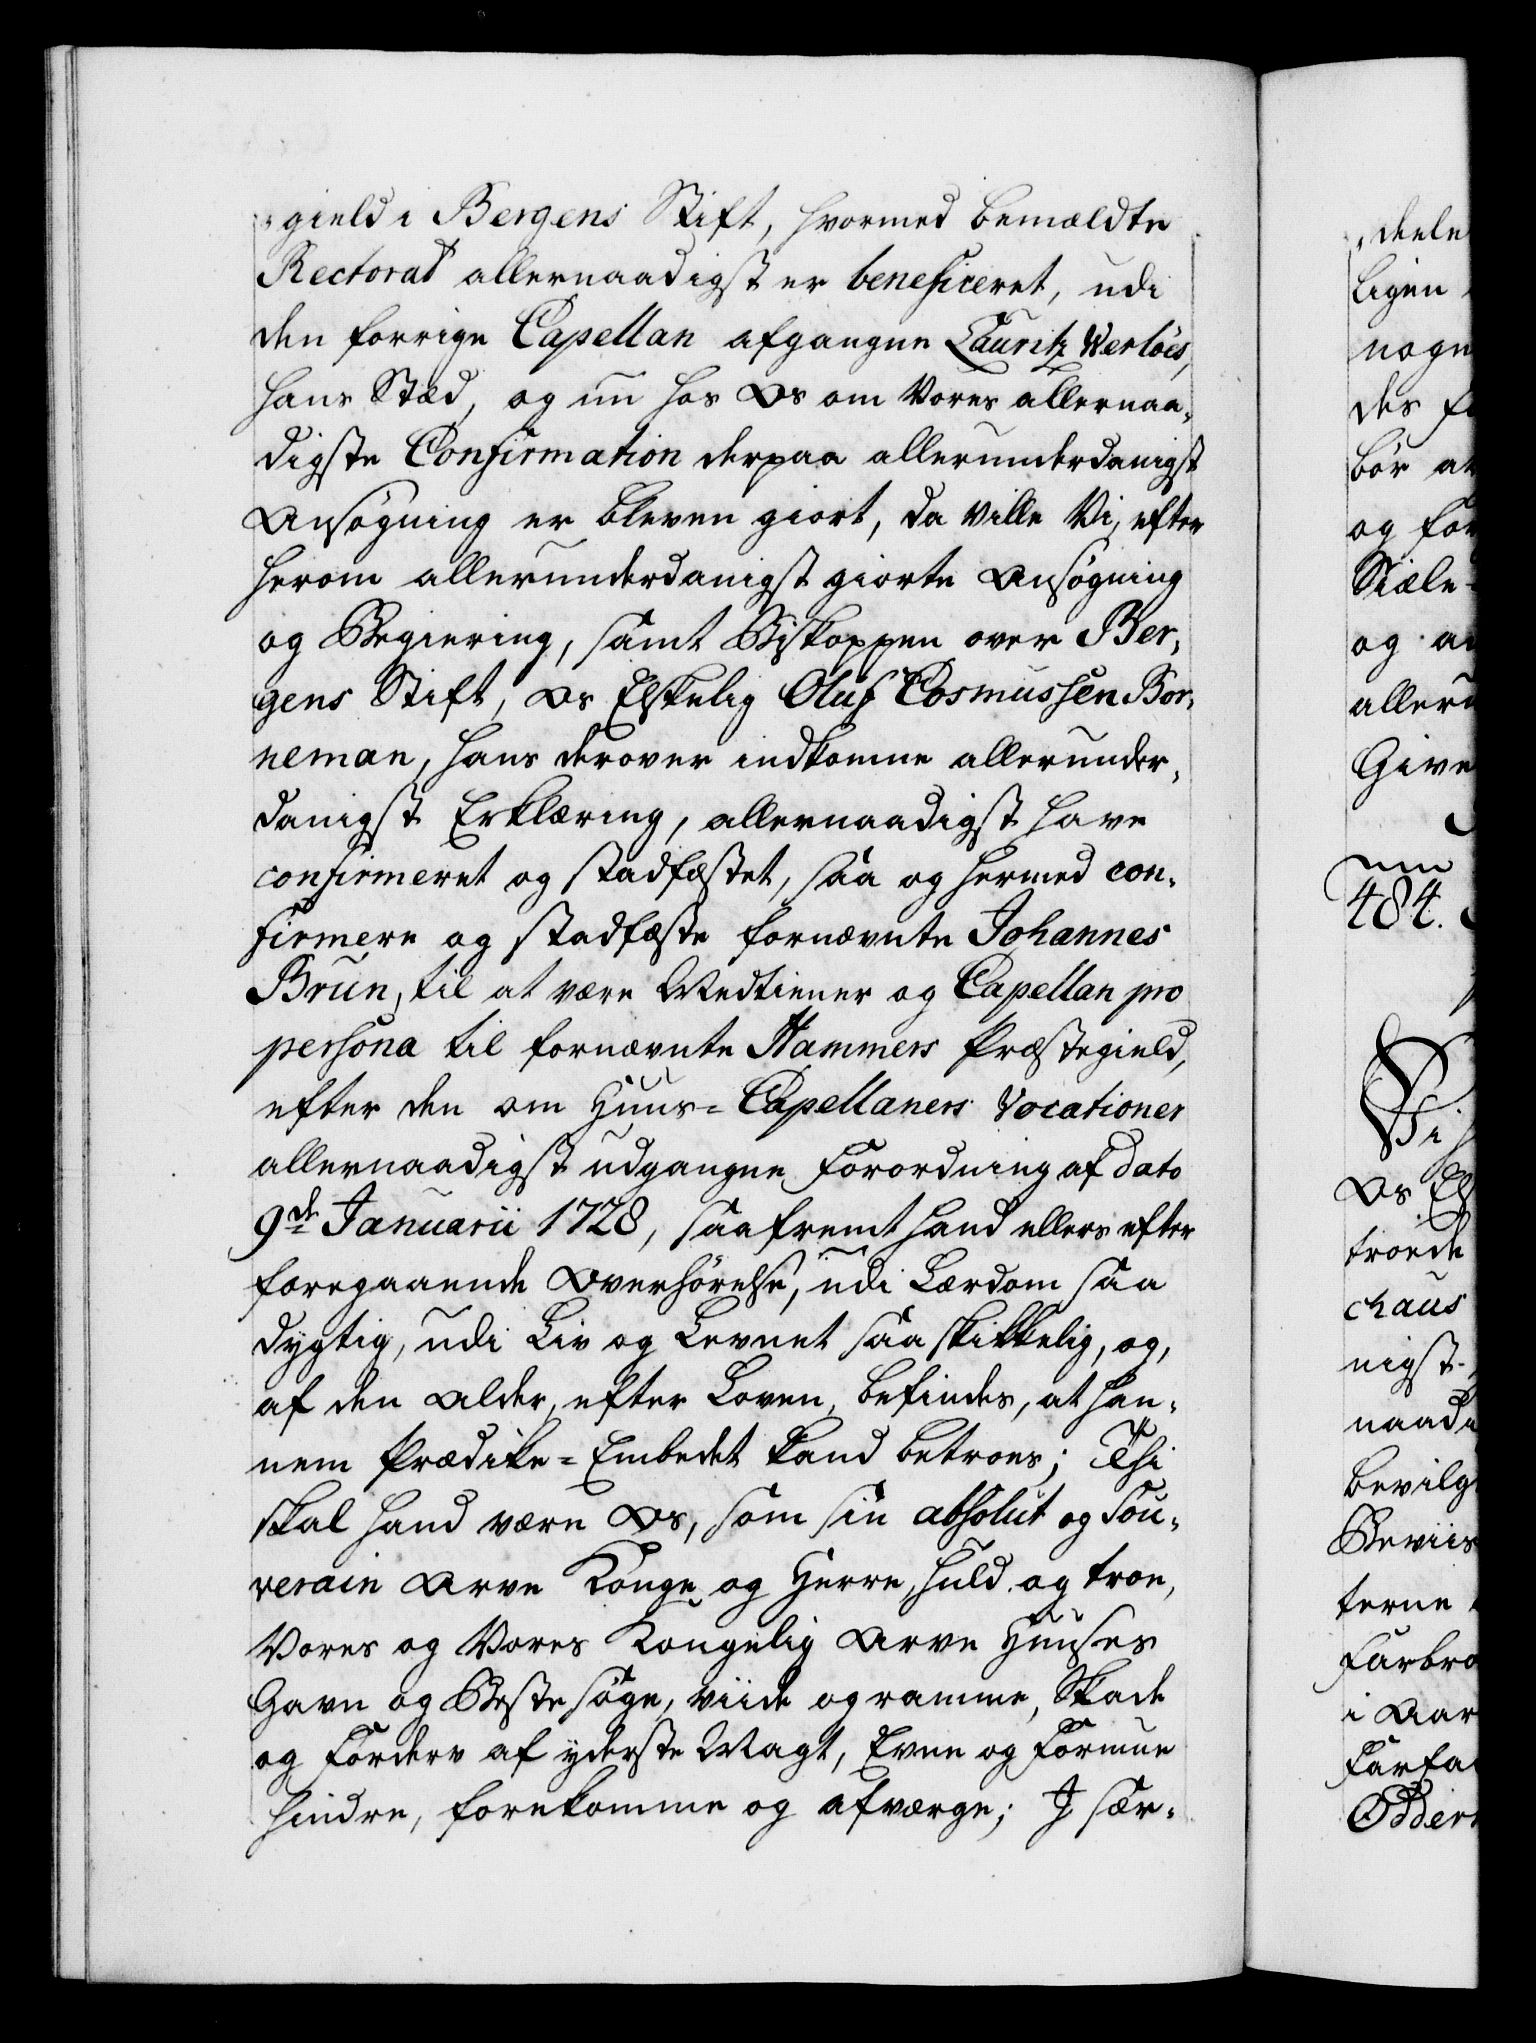 gield i Bergens Stift, hvormed bemældte
Rectorat allernaadigst er beneficeret, udi
den forrige Capellan afgangne Lauritz Werløes,
hans Stæd, og nu hos Os om Vores allernaa-
digste Confirmation derpaa allerunderdanigst
Ansøgning er bleven giort, da Ville Vi, efter
herom allerunderdanigst giorte Ansøgning
og Begiering, samt Biskoppen over Ber-
gens Stift, Os Elskelig Oluf Cosmussen Bor-
neman, hans derover indkomne allerunder-
danigst Erklæring, allernaadigst have
confirmeret og stadfæstet, saa og hermed con-
firmere og stadfæste fornævnte Johannes
Brun, til at være Medtiener og Capellan pro
persona til fornævnte Hammers Præstegield,
efter den om Huus-Capellaners Vocationer
allernaadigst udgangne Forordning af dato
9de Januarii 1728, saafremt hand ellers efter
foregaaende Overhørelse, udi Lærdom saa
dygtig, udi Liv og Levnet saa skikkelig, og,
af den Alder, efter Loven, befindes, at han-
nem Prædike-Embedet kand betroes; Thi
skal hand være Os, som sin absolut og Sou-
verain Arve Konge og Herre, huld og troe,
Vores og Vores Kongelig Arve Huuses
Gavn og Beste søge, viide og ramme, Skade
og Forderv af yderste Magt, Evne og Formue
hindre, forekomme og afværge; I sær-
deele
ligen
nogn
des
bør at
og for
Siæle-
og
Give
484.
Vi
Os
troede
chaus
nigst
naad
bevilg
Beviis
terne
i Aar